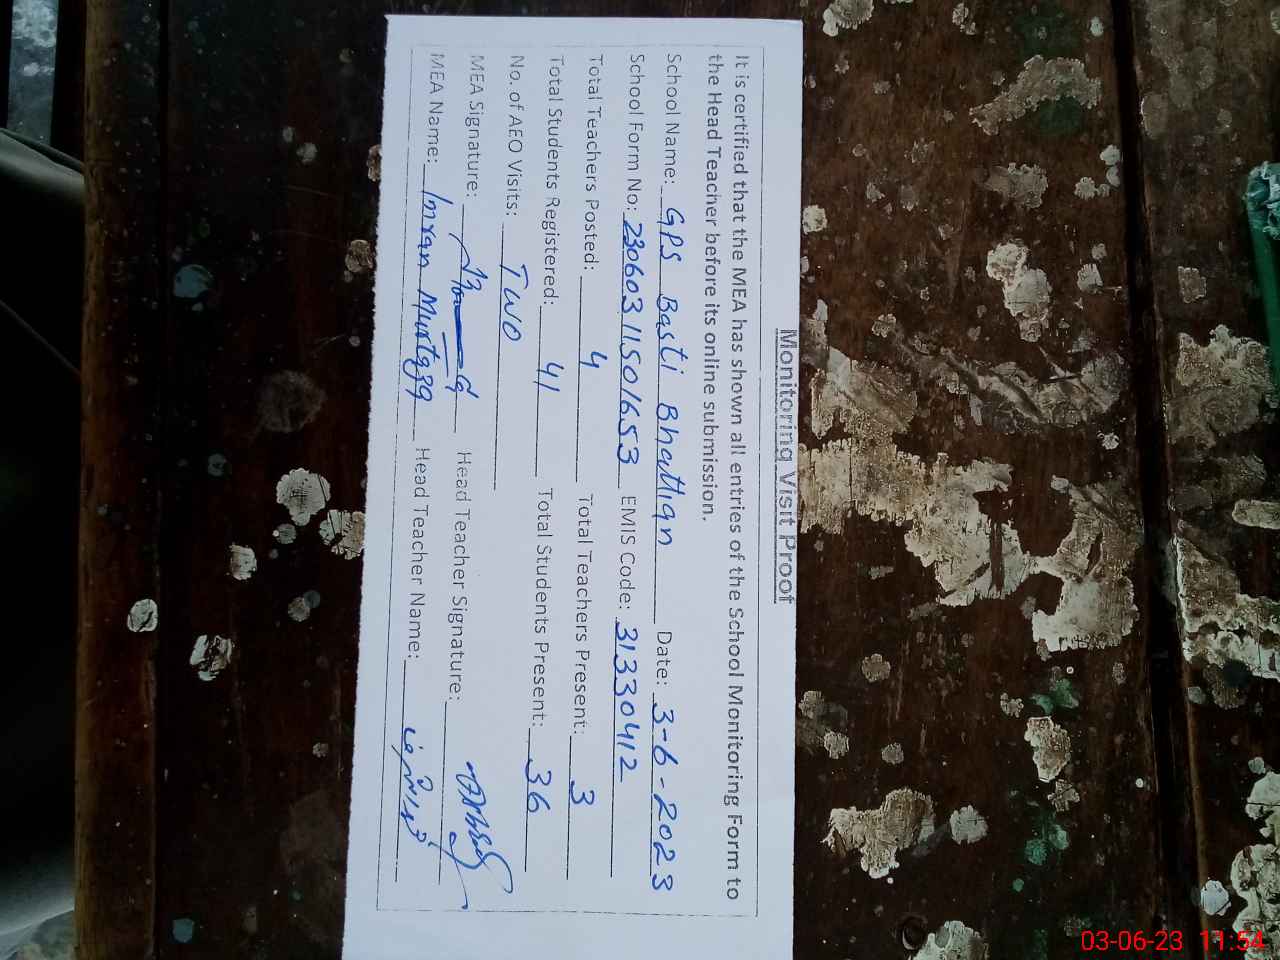 Monitoring Visit Proof
It is certified that the MEA has shown all entries of the School Monitoring Form to
the Head Teacher before its online submission.
School Name: GPS Basti Bhattian Date: 3-6-2023
School Form No: 23060311501653 EMIS Code: 31330412
Total Teachers Posted: 4 Total Teachers Present: 3
Total Students Registered: 41 Total Students Present: 36
No. of AEO Visits: TWO
MEA Signature: Head Teacher Signature:
MEA Name: Imran Murtaza Head Teacher Name:
03-06-23 11:54